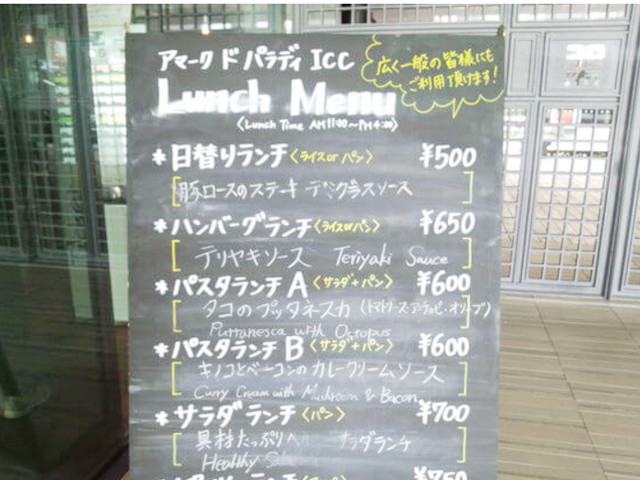 アマーク ド パラディ ICC
広く一般の皆様にも
ご利用頂けます!
Lunch Menu
<Lunch Time AM11:00~PM4:00>
*日替りランチ<ライス or パン> ¥500
[豚ロースのステーキ デミグラスソース]
*ハンバーグランチ<ライス or パン> ¥650
[テリヤキソース Teriyaki Sauce]
*パスタランチA<サラダ+パン> ¥600
[タコのプッタネスカ (トマトソース・アンチョビ・オリーブ)
Puttanesca with Octopus]
*パスタランチB<サラダ+パン> ¥600
[キノコとベーコンのカレークリームソース
Curry Cream with Mushroom & Bacon]
*サラダランチ<パン> ¥700
[具材たっぷりヘ ラダランチ
Healthy]
¥750